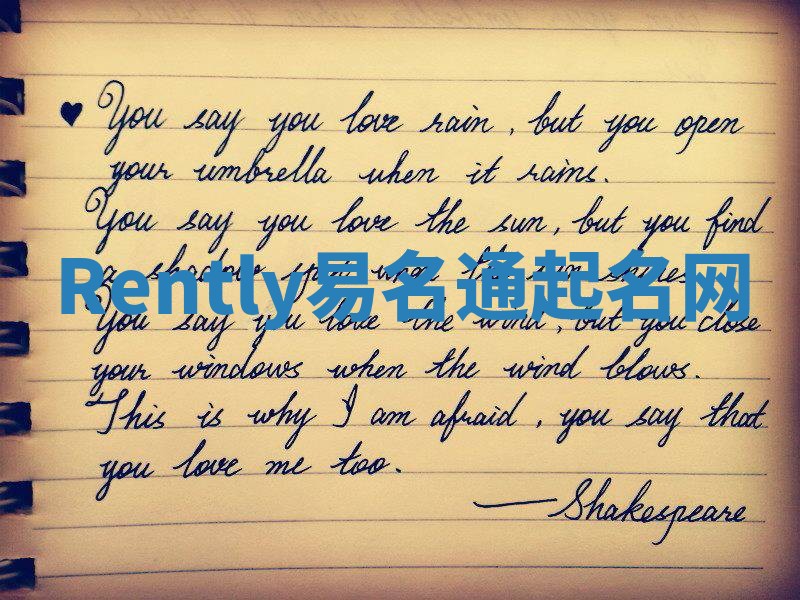 ♥ You say you love rain, but you open
your umbrella when it rains.
You say you love the sun, but you find
a shadow spot when the sun shines.
Rently易名通起名网
You say you love the wind, but you close
your windows when the wind blows.
This is why I am afraid, you say that
you love me too.
— Shakespeare